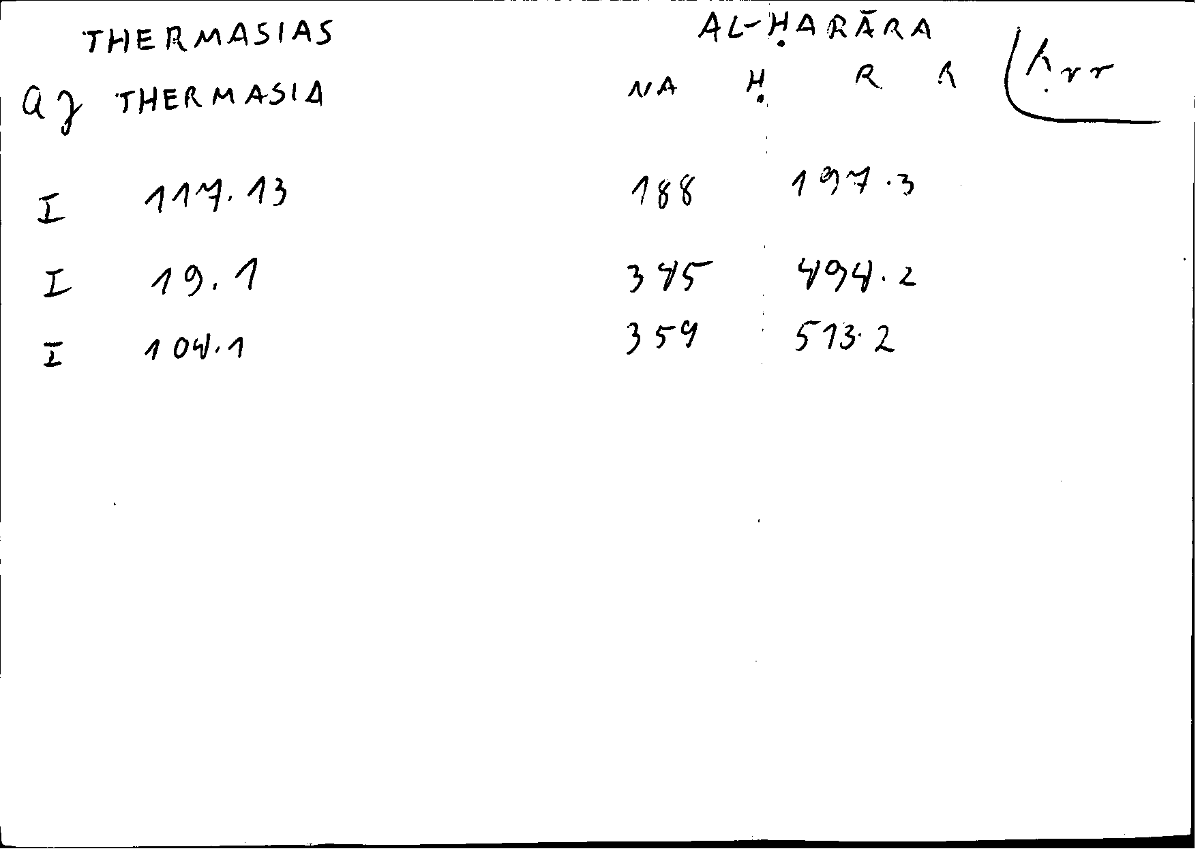 THERMASIAS AL-ḤARĀRA
aj THERMASIA NA Ḥ R R ḥrr
I 117.13 188 197.3
I 19.1 345 494.2
I 104.1 359 513.2